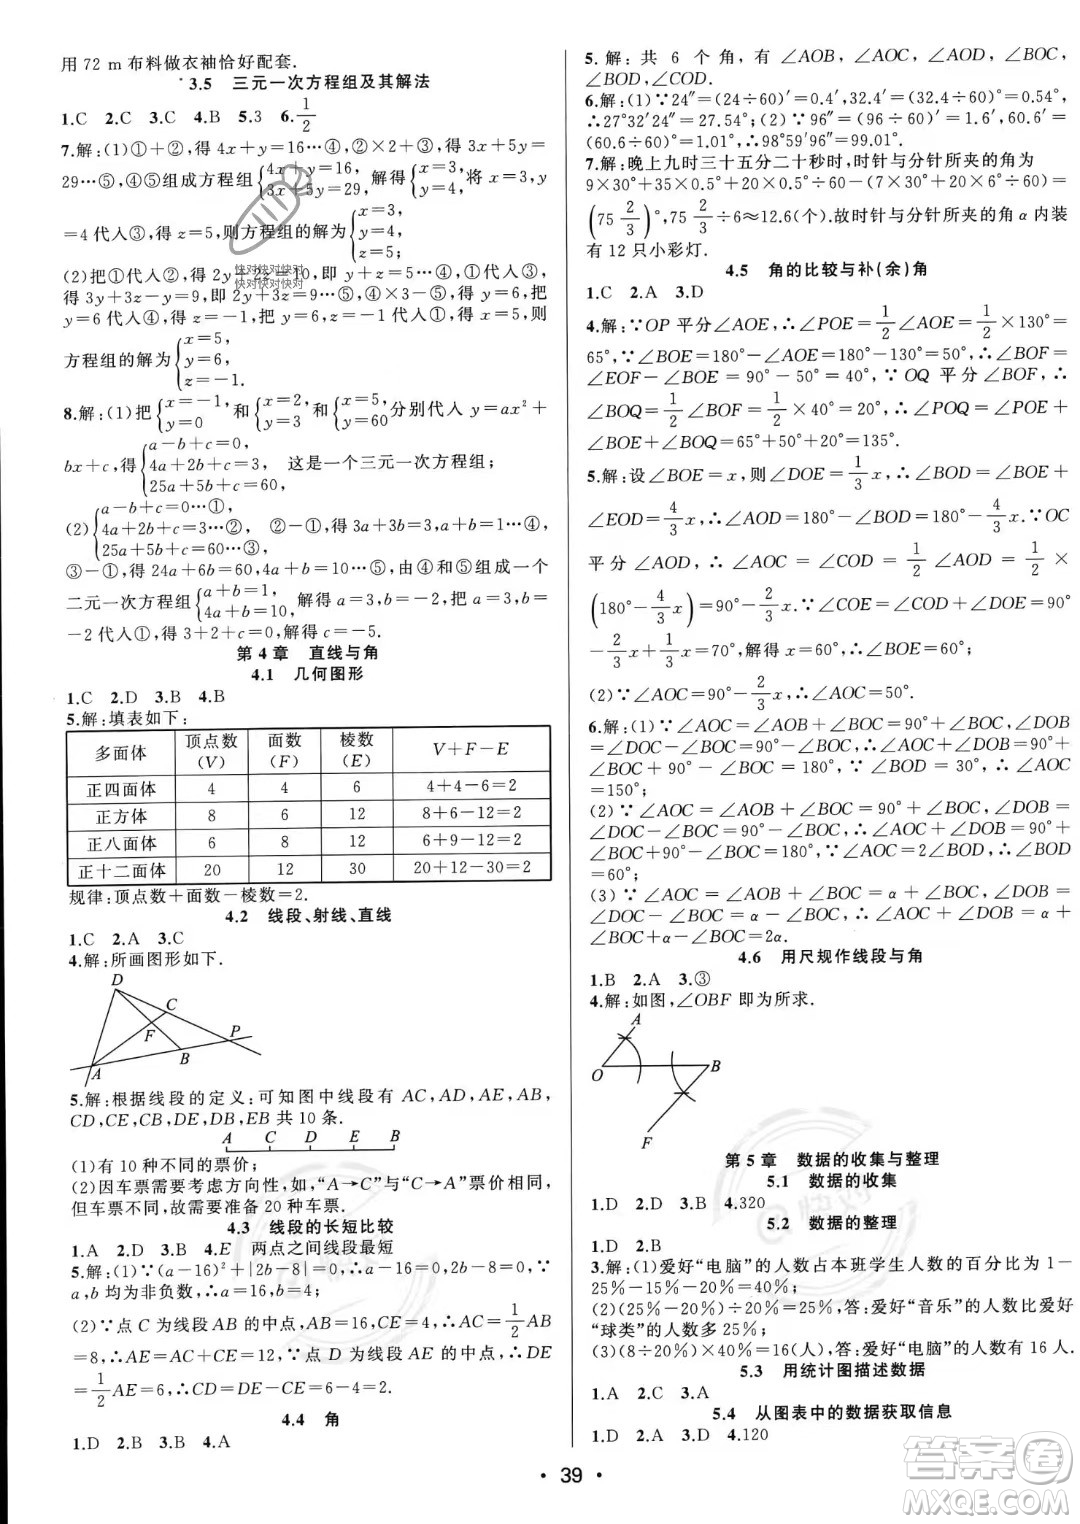 用 72 m 布料做衣袖恰好配套.
3.5 三元一次方程组及其解法
1.C 2.C 3.C 4.B 5.3 6.1/2
7.解:(1)①+②,得 4x+y=16…④,②+③,得 3x+5y=
29…⑤,④⑤组成方程组{4x+y=16, 3x+5y=29, 解得{x=3, y=4, 将 x=3,y
=4代入③,得 z=5,则方程组的解为{x=3, y=4, z=5.
(2)把①代入②,得 2y+2z=10,即 y+z=5…④,把①代入③,
得 3y+3+y-2z=29,即 2y-z=13…⑤,④+⑤,得
y=6,把 y=6 代入④,得 z=-1,把 y=6,z=-1代入①,得 x=5,则
方程组的解为{x=5, y=6, z=-1.
8.解:(1)把{x=-1, y=0 和{x=2, y=3 和{x=5, y=60 分别代入 y=ax²+
bx+c,得{a-b+c=0, 4a+2b+c=3, 25a+5b+c=60, 这是一个三元一次方程组;
(2){a-b+c=0…①, 4a+2b+c=3…②, 25a+5b+c=60…③, ②-①,得 3a+3b=3,即 a+b=1…④,
③-①,得 24a+6b=60,即 4a+b=10…⑤,由④与⑤组成一个
二元一次方程组{a+b=1, 4a+b=10. 解得 a=3,b=-2,把 a=3,b=
-2 代入①,得 3+2+c=0,解得 c=-5.
第 4 章 直线与角
4.1 几何图形
1.C 2.D 3.B 4.B
5.解:填表如下:
多面体 顶点数(V) 面数(F) 棱数(E) V+F-E
正四面体 4 4 6 4+4-6=2
正方体 8 6 12 8+6-12=2
正八面体 6 8 12 6+9-12=2
正十二面体 20 12 30 20+12-30=2
规律:顶点数+面数-棱数=2.
4.2 线段、射线、直线
1.C 2.A 3.C
4.解:所画图形如下.
D
C
F
P
B
A
5.解:根据线段的定义:可知图中线段有 AC,AD,AE,AB,
CD,CE,CB,DE,DB,EB 共 10 条.
A C D E B
(1)有 10 种不同的票价;
(2)因车票需要考虑方向性,如,“A→C”与“C→A”票价相同,
但车票不同,故需要准备 20 种车票.
4.3 线段的长短比较
1.A 2.D 3.B 4.E 两点之间线段最短
5.解:(1)∵(a-16)²+|2b-8|=0,∴a-16=0,2b-8=0,∵
a,b均为非负数,∴a=16,b=4;
(2)∵点 C 为线段 AB 的中点,AB=16,CE=4,∴AC=1/2 AB
=8,∴AE=AC+CE=12,∵点 D 为线段 AE 的中点,∴DE
=1/2 AE=6,∴CD=DE-CE=6-4=2.
4.4 角
1.D 2.B 3.B 4.A
5.解:共 6 个角,有 ∠AOB,∠AOC,∠AOD,∠BOC,
∠BOD,∠COD.
6.解:(1)∵24″=(24÷60)′=0.4′,32.4′=(32.4÷60)°=0.54°,
∴27°32′24″=27.54°;(2)∵96″=(96÷60)′=1.6′,60.6′=
(60.6÷60)°=1.01°,∴98°59′96″=99.01°.
7.解:晚上九时三十五分二十秒时,时针与分针所夹的角为
9×30°+35×0.5°+20÷60×0.5°-(7×30°+20÷60×6°)=
(75 2/3)°,75 2/3÷6≈12.6(个).故时针与分针所夹的角 α 内装
有 12 只小彩灯.
4.5 角的比较与补(余)角
1.C 2.A 3.D
4.解:∵OP 平分∠AOE,∴∠POE=1/2∠AOE=1/2×130°=
65°,∵∠BOE=180°-∠AOE=180°-130°=50°,∴∠BOF=
∠EOF-∠BOE=90°-50°=40°,∵OQ 平分∠BOF,∴
∠BOQ=1/2∠BOF=1/2×40°=20°,∴∠POQ=∠POE+
∠BOE+∠BOQ=65°+50°+20°=135°.
5.解:设∠BOE=x,则∠DOE=1/3x,∴∠BOD=∠BOE+
∠EOD=4/3x,∴∠AOD=180°-∠BOD=180°-4/3x.∵OC
平分∠AOD,∴∠AOC=∠COD=1/2∠AOD=1/2×
(180°-4/3x)=90°-2/3x.∵∠COE=∠COD+∠DOE=90°
-2/3x+1/3x=70°,解得 x=60°,∴∠BOE=60°;
(2)∵∠AOC=90°-2/3x,∴∠AOC=50°.
6.解:(1)∵∠AOC=∠AOB+∠BOC=90°+∠BOC,∠DOB
=∠DOC-∠BOC=90°-∠BOC,∴∠AOC+∠DOB=
90°+∠BOC+90°-∠BOC=180°.∵∠BOD=30°,∴∠AOC
=150°;
(2)∵∠AOC=∠AOB+∠BOC=90°+∠BOC,∠DOB=
∠DOC-∠BOC=90°-∠BOC,∴∠AOC+∠DOB=90°+
∠BOC+90°-∠BOC=180°.∵∠AOC=2∠BOD,∴∠AOC
=120°;
(3)∵∠AOC=∠AOB+∠BOC=α+∠BOC,∠DOB=
∠DOC-∠BOC=α-∠BOC,∴∠AOC+∠DOB=α+
∠BOC+α-∠BOC=2α.
4.6 用尺规作线段与角
1.B 2.A 3.③
4.解:如图,∠OBF 即为所求.
A
O
B
F
第 5 章 数据的收集与整理
5.1 数据的收集
1.D 2.D 3.B 4.320
5.2 数据的整理
1.D 2.B
3.解:(1)爱好“电脑”的人数占本班学生人数的百分比为 1-
25%-15%-20%=40%;
(2)(25%-20%)÷20%=25%,答:爱好“音乐”的人数比爱好
“球类”的人数多 25%;
(3)(8÷20%)×40%=16(人),答:爱好“电脑”的人数有 16 人.
5.3 用统计图描述数据
1.A 2.C 3.A
5.4 从图表中的数据获取信息
1.D 2.A 3.D 4.120
39
快对快对快对
快对快对快对
@快对
答案圈
MXQE.COM